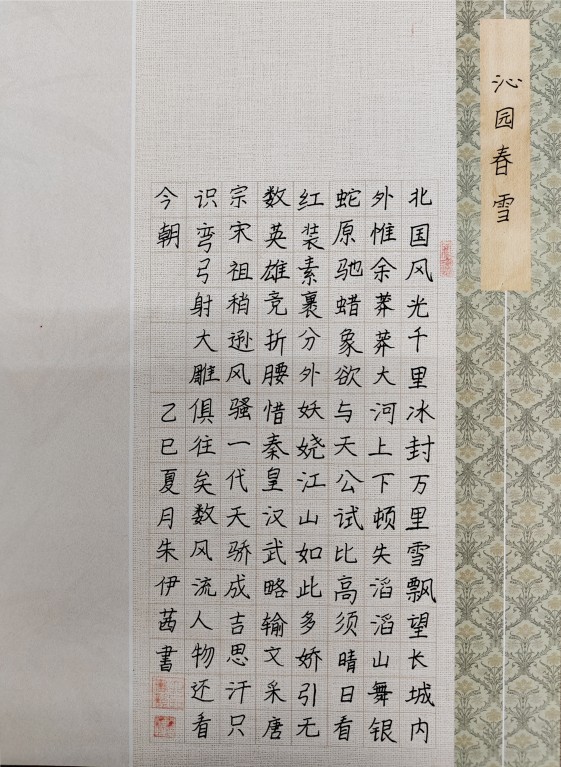 沁园春雪
北国风光千里冰封万里雪飘望长城内
外惟余莽莽大河上下顿失滔滔山舞银
蛇原驰蜡象欲与天公试比高须晴日看
红装素裹分外妖娆江山如此多娇引无
数英雄竞折腰惜秦皇汉武略输文采唐
宗宋祖稍逊风骚一代天骄成吉思汗只
识弯弓射大雕俱往矣数风流人物还看
今朝 乙巳夏月朱伊茜書